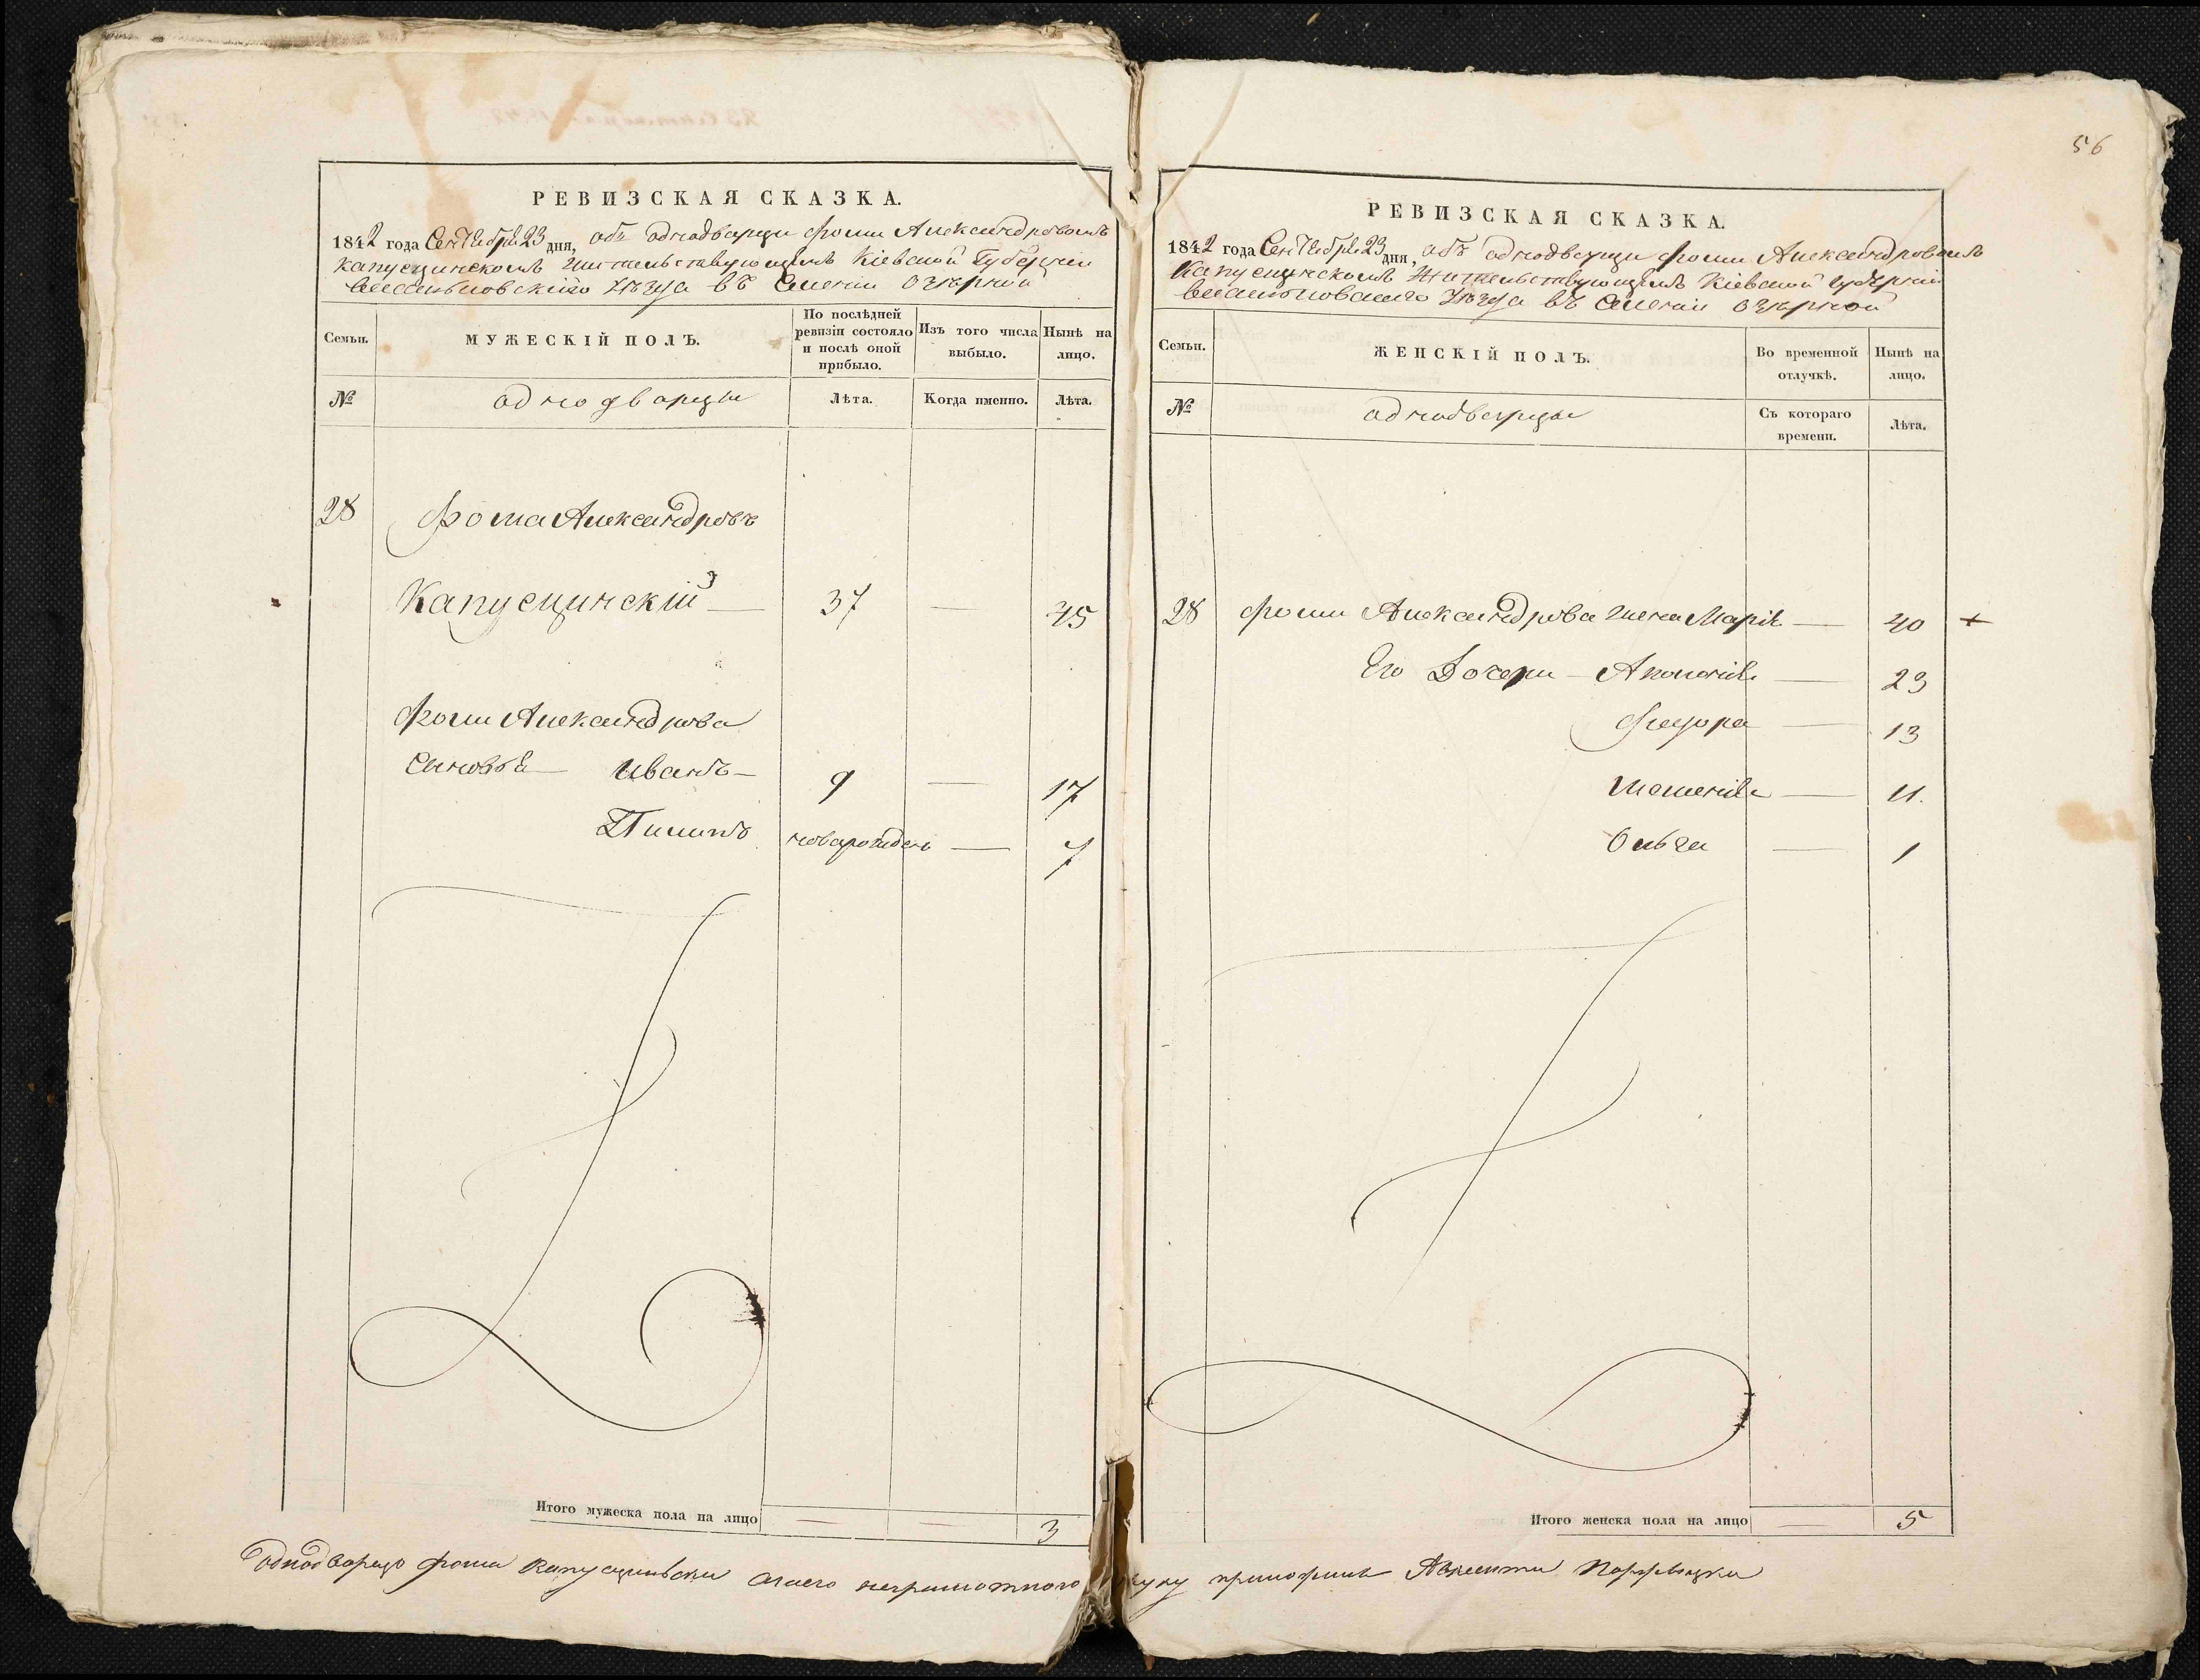 РЕВИЗСКАЯ СКАЗКА.
1842 года Сентября 23 дня, объ однодворци Фоми Александровомъ
Капусцинскомъ жительствующимъ Кіевской Губерніи
Васильковскаго Уѣзда въ Селеніи Озѣрной
Семьи.
МУЖЕСКІЙ ПОЛЪ.
По послѣдней ревизіи состояло и послѣ оной прибыло.
Изъ того числа выбыло.
Нынѣ на лицо.
№
однодворцы
Лѣта.
Когда именно.
Лѣта.
28 Фома Александровъ
Капусцинскій — 37 — 45
Фоми Александрова
Сыновья Иванъ — 9 — 17
Пилипъ новарожденъ — 7
Итого мужеска пола на лицо — — 3
56
РЕВИЗСКАЯ СКАЗКА.
1842 года Сентября 23 дня, объ однодворци Фоми Александровомъ
Капусцинскомъ жительствующимъ Кіевской губерніи
Васильковскаго Уѣзда въ Селеніи Озѣрной
Семьи.
ЖЕНСКІЙ ПОЛЪ.
Во временной отлучкѣ.
Нынѣ на лицо.
№
однодворцы
Съ котораго времени.
Лѣта.
28 Фоми Александрова жена Марія — 40 +
Его Дочери — Аполонія — 23
Фледора — 13
Меланія — 11.
Ольга — 1
Итого женска пола на лицо — 5
однодворецъ Фома Капусцинскій а неграмотного руку приложилъ